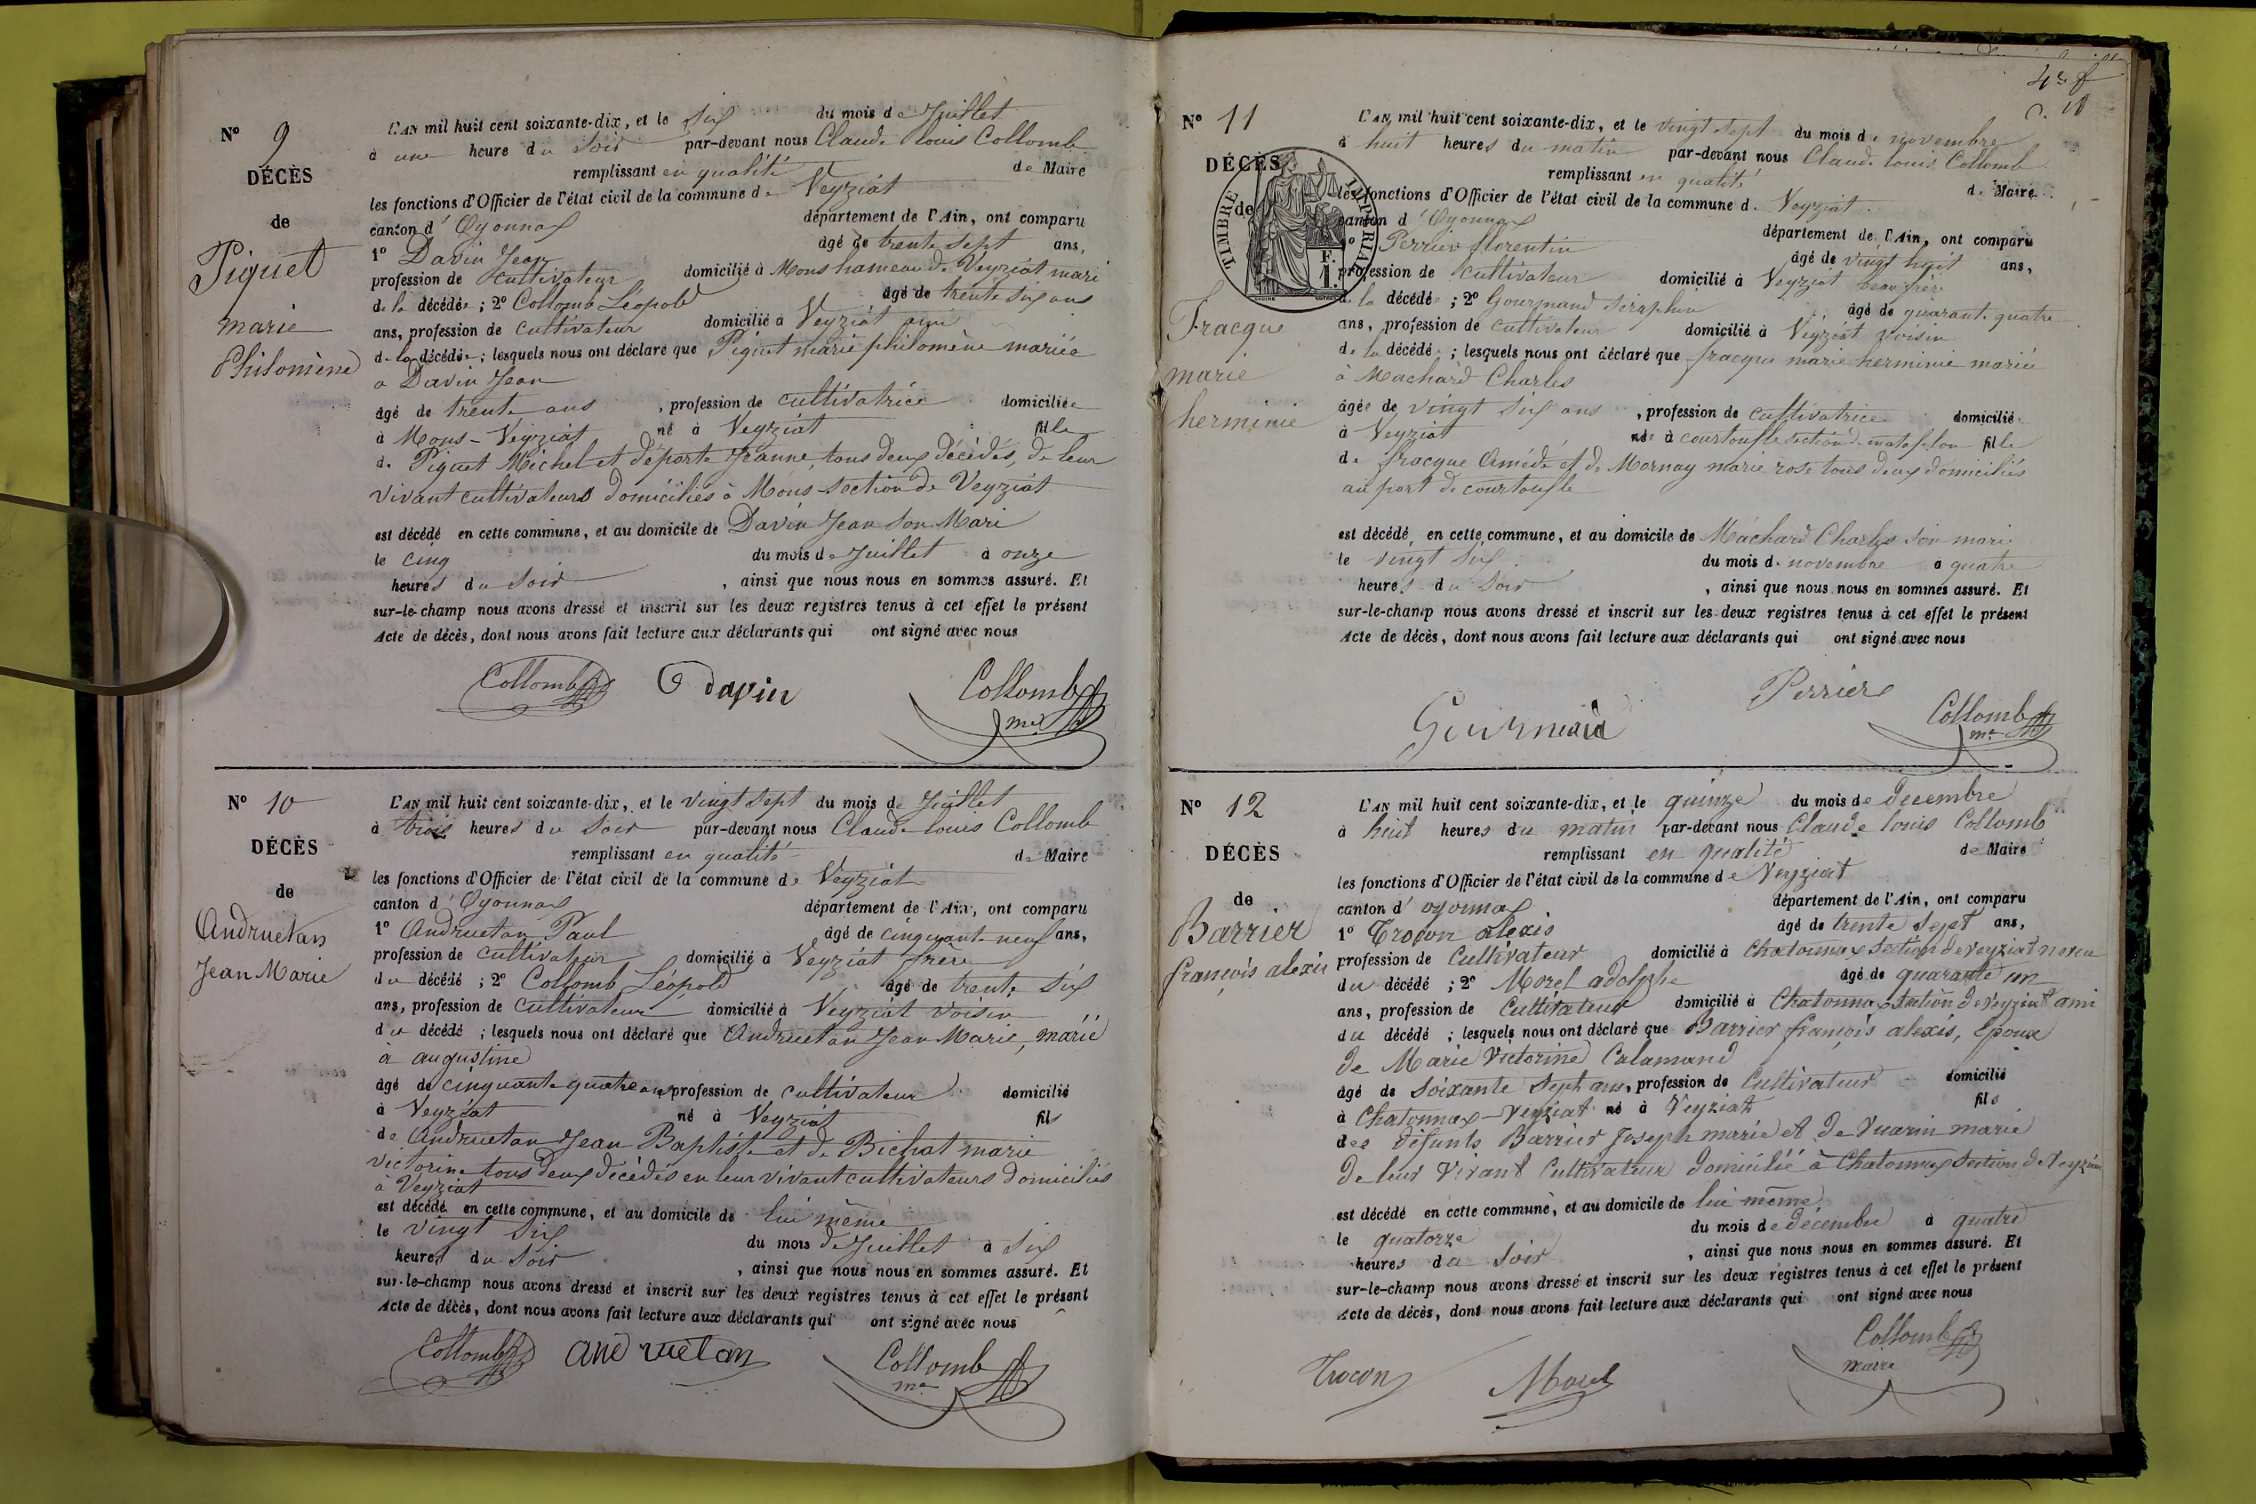 N° 9
DÉCÈS
de
Piquet
marie
Philomène
L'AN mil huit cent soixante-dix, et le six du mois de Juillet
à une heure du Soir par-devant nous Claude louis Collomb
remplissant en qualité de Maire
les fonctions d'Officier de l'état civil de la commune de Veyziat
canton d'Oyonnax département de l'Ain, ont comparu
1° Davin Jean âgé de trente sept ans,
profession de cultivateur domicilié à Mons hameau de Veyziat mari
de la décédée ; 2° Collomb Léopold âgé de trente six ans
ans, profession de cultivateur domicilié à Veyziat ami
de la décédée ; lesquels nous ont déclaré que Piquet marie philomène mariée
a Davin Jean
âgé de trente ans , profession de cultivatrice domiciliée
à Mons-Veyziat né à Veyziat fille
de Piquet Michel et déporte Jeanne, tous deux décédés, de leur
vivant cultivateurs domiciliés à Mons-section de Veyziat
est décédé en cette commune, et au domicile de Davin Jean son Mari
le cinq du mois de Juillet à onze
heures du Soir , ainsi que nous nous en sommes assuré. Et
sur-le-champ nous avons dressé et inscrit sur les deux registres tenus à cet effet le présent
Acte de décès, dont nous avons fait lecture aux déclarants qui ont signé avec nous
Collomb davin Collomb
me
N° 10
DÉCÈS
de
Andruetan
Jean Marie
L'AN mil huit cent soixante-dix, et le vingt sept du mois de Juillet
à trois heures du Soir par-devant nous Claude louis Collomb
remplissant en qualité de Maire
les fonctions d'Officier de l'état civil de la commune de Veyziat
canton d'Oyonnax département de l'Ain, ont comparu
1° Andruetan Paul âgé de cinquante neuf ans,
profession de cultivateur domicilié à Veyziat frère
du décédé ; 2° Collomb Léopold âgé de trente six
ans, profession de cultivateur domicilié à Veyziat voisin
du décédé ; lesquels nous ont déclaré que Andruetan Jean Marie, marié
à augustine
âgé de cinquante quatre ans profession de cultivateur domicilié
à Veyziat né à Veyziat fils
de Andruetan Jean Baptiste et de Bichat marie
victorine tous deux décédés en leur vivant cultivateurs domiciliés
à Veyziat
est décédé en cette commune, et au domicile de lui même
le vingt six du mois de Juillet à six
heures du Soir , ainsi que nous nous en sommes assuré. Et
sur-le-champ nous avons dressé et inscrit sur les deux registres tenus à cet effet le présent
Acte de décès, dont nous avons fait lecture aux déclarants qui ont signé avec nous
Collomb andruetan Collomb
me
N° 11
DÉCÈS
de
TIMBRE IMPÉRIAL
Fracque
marie
herminie
L'AN mil huit cent soixante-dix, et le vingt sept du mois de novembre
à huit heures du matin par-devant nous Claude louis Collomb
remplissant en qualité de Maire
les fonctions d'Officier de l'état civil de la commune de Veyziat
canton d'Oyonnax département de l'Ain, ont comparu
Perrier florentin âgé de vingt huit ans,
profession de cultivateur domicilié à Veyziat beau frère
de la décédé ; 2° Gourmand séraphin âgé de quarante quatre
ans, profession de cultivateur domicilié à Veyziat voisin
de la décédé ; lesquels nous ont déclaré que fracque marie herminie mariée
à Machard Charles
âgée de vingt six ans , profession de cultivatrice domicilié
à Veyziat née à courtoufle section de matafelon fille
de fracque Amédé et de Mornay marie rose tous deux domiciliés
au port de courtoufle
est décédé en cette commune, et au domicile de Machard Charles son mari
le vingt six du mois de novembre à quatre
heures du Soir , ainsi que nous nous en sommes assuré. Et
sur-le-champ nous avons dressé et inscrit sur les deux registres tenus à cet effet le présent
Acte de décès, dont nous avons fait lecture aux déclarants qui ont signé avec nous
Gourmand Perrier Collomb
me
N° 12
DÉCÈS
de
Barrier
françois alexis
L'AN mil huit cent soixante-dix, et le quinze du mois de Decembre
à huit heures du matin par-devant nous Claude louis Collomb
remplissant en qualité de Maire
les fonctions d'Officier de l'état civil de la commune de Veyziat
canton d'oyonnax département de l'Ain, ont comparu
1° Trocon alexis âgé de trente sept ans,
profession de Cultivateur domicilié à Chatonnax section de veyziat neveu
du décédé ; 2° Morel adolphe âgé de quarante un
ans, profession de Cultivateur domicilié à Chatonnax section de veyziat ami
du décédé ; lesquels nous ont déclaré que Barrier françois alexis, Epoux
de Marie Victorine Calamand
âgé de soixante sept ans, profession de Cultivateur domicilié
à Chatonnax-Veyziat né à Veyziat fils
des défunts Barrier Joseph marie et de Vuarin marie
de leur vivant Cultivateur domicilié à Chatonnax section de Veyziat
est décédé en cette commune, et au domicile de lui même
le quatorze du mois de décembre à quatre
heures du Soir , ainsi que nous nous en sommes assuré. Et
sur-le-champ nous avons dressé et inscrit sur les deux registres tenus à cet effet le présent
Acte de décès, dont nous avons fait lecture aux déclarants qui ont signé avec nous
Trocon Morel Collomb
maire